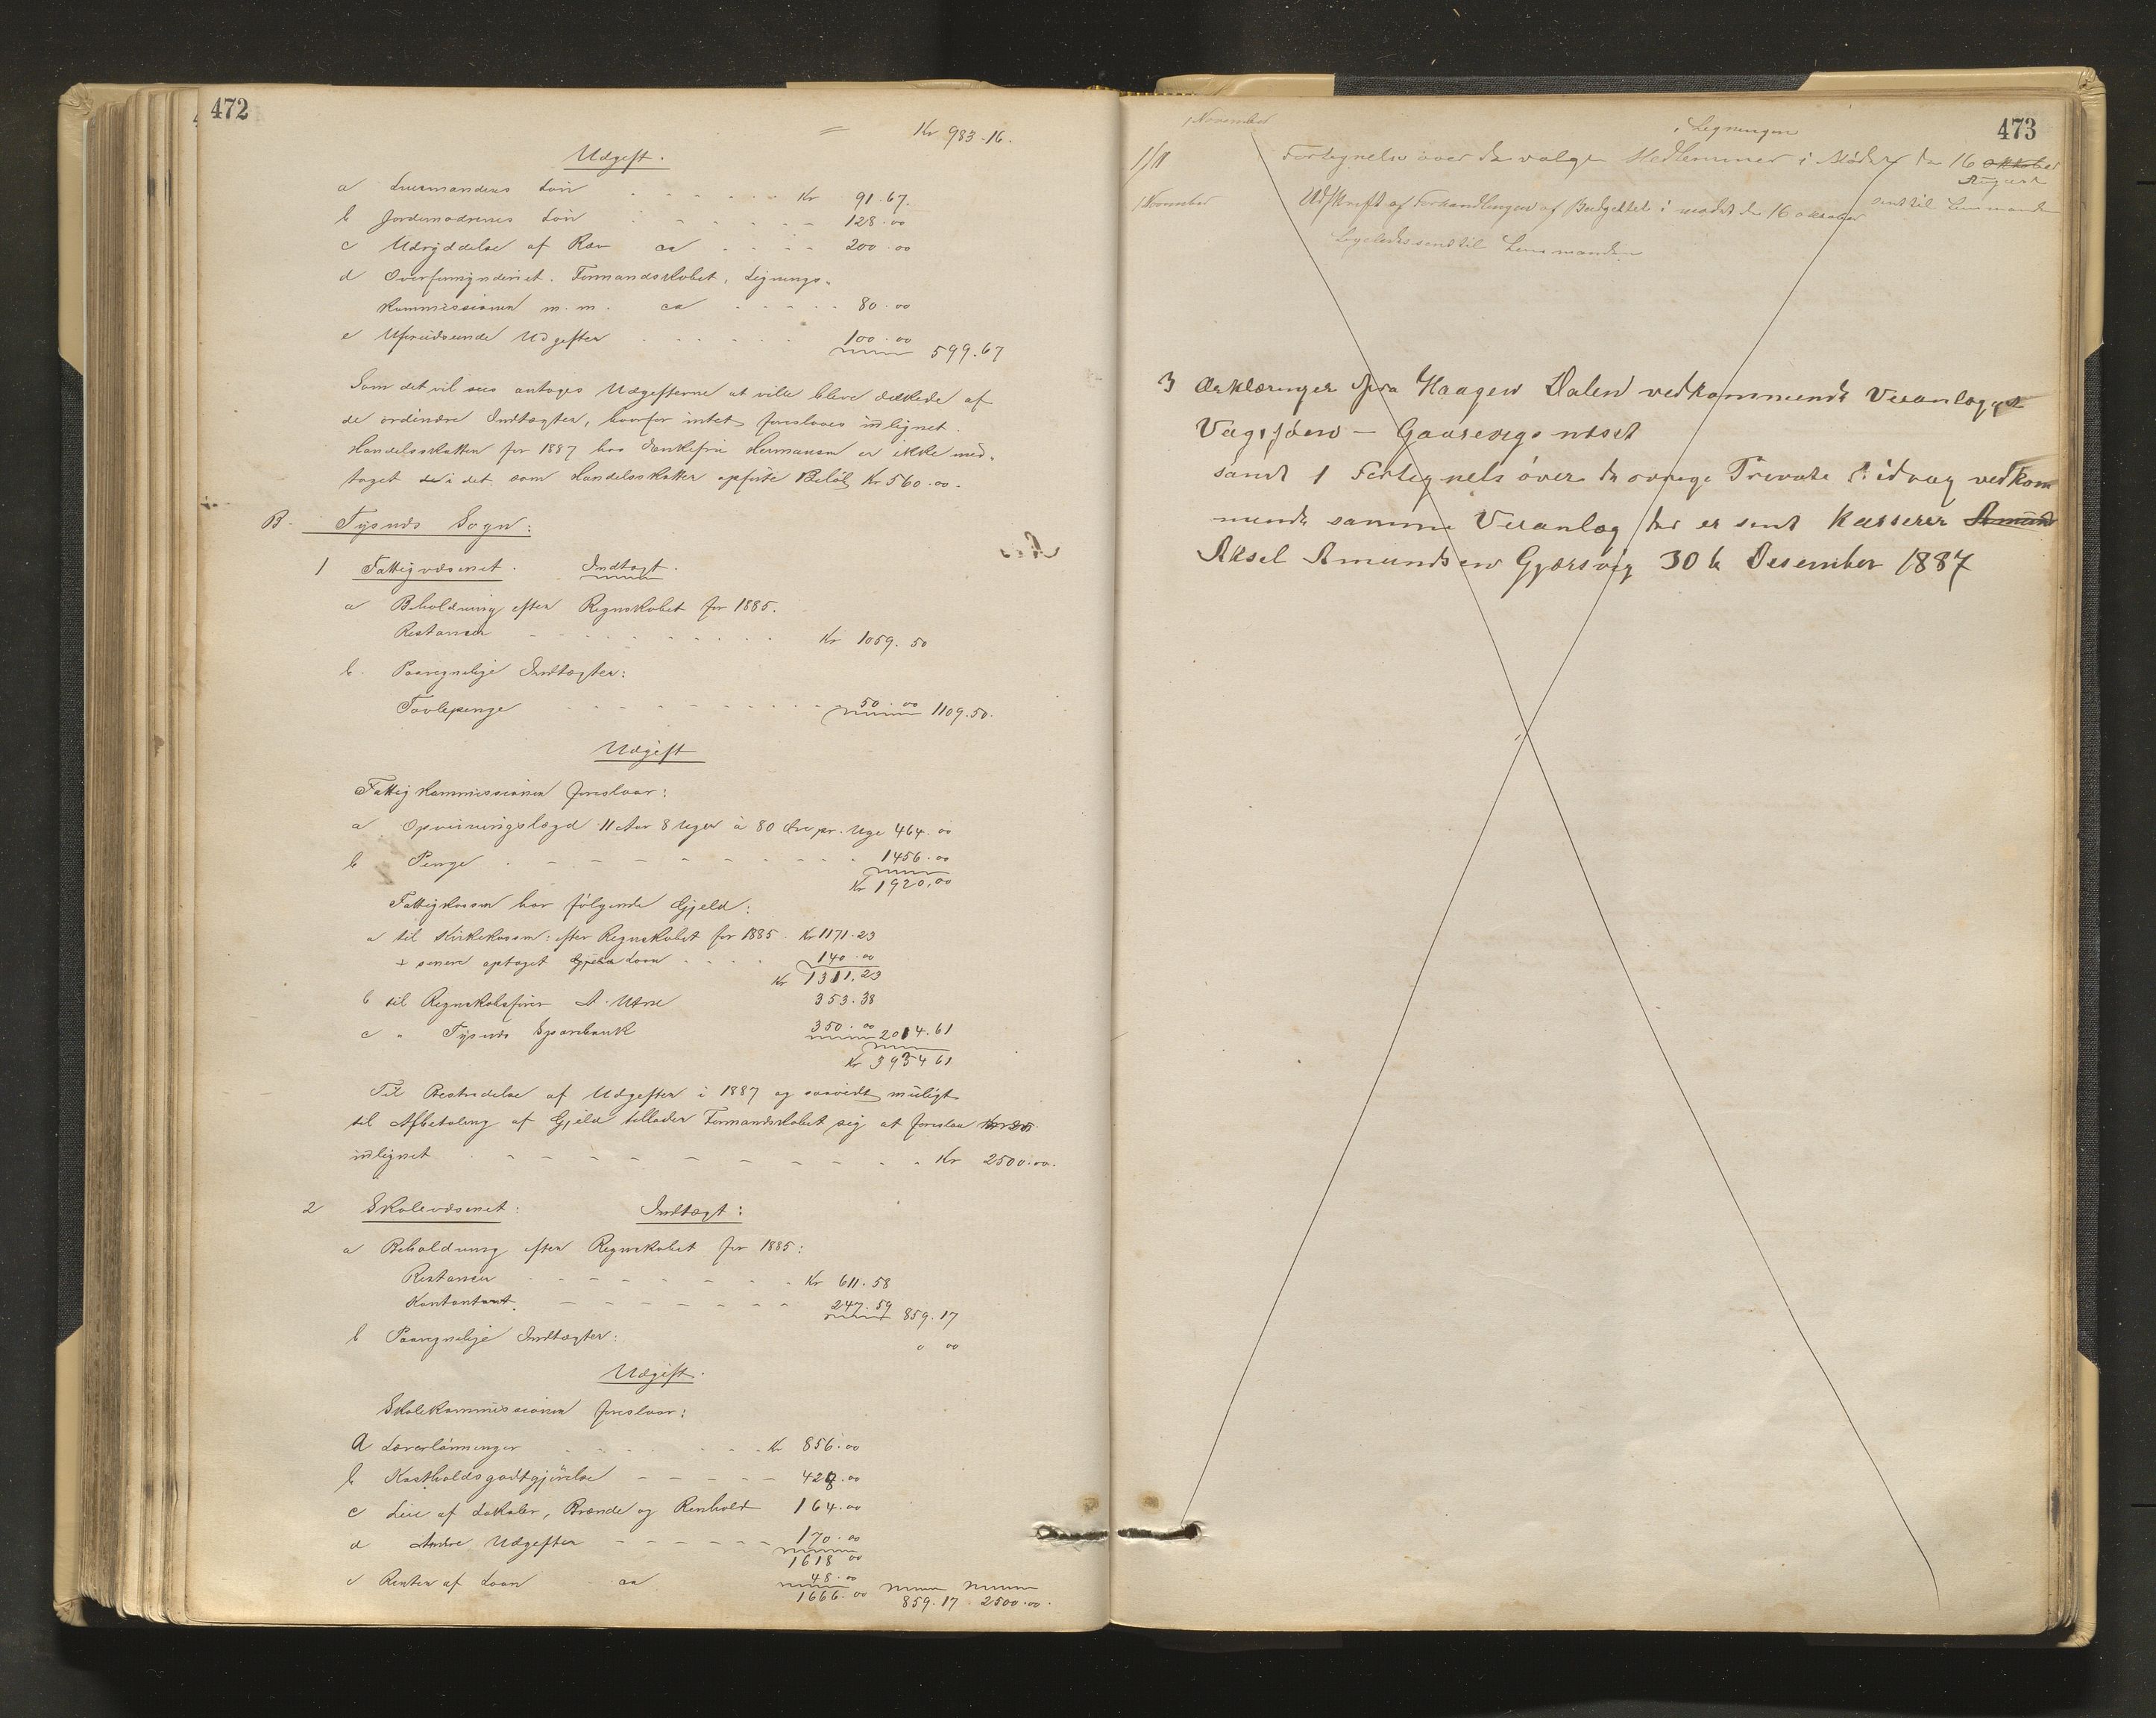 472
= Kr 983-16.
Udgift.
a Lensmandens Løn Kr 91.67.
b Jordemødrenes Løn 128.00
c Udryddelse af Ræv ca 200.00
d Overformynderiet. Formandskabet, Lignings-
kommissionen m.m. ca 80.00
e Uforudseende Udgifter 100.00 599.67
Som det vil sees antages Udgifterne at ville blive dækkede af
de ordinære Indtægter, hvorfor intet foreslaaes udlignet.
Handelsskatten for 1887 hos Enkefru Hermansen er ikke med-
taget i det som Handelsskatter opførte Beløb Kr 560.00.
B. Tysnes Sogn:
1 Fattigvæsenet. Indtægt.
a Beholdning efter Regnskabet for 1885.
Restancer Kr 1059.50
b. Paaregnelige Indtægter:
Tavlepenge 50.00 1109.50.
Udgift
Fattigkommissionen foreslaar:
a Opviisningslægd 11 Aar 8 Uger à 80 Øre pr. Uge 464.00
b Penge 1456.00
Kr 1920,00
Fattigkassen har følgende Gjeld:
a til Kirkekassen: efter Regnskabet for 1885. Kr 1171.23
+ senere optaget Laan 140.00
Kr 1311.23
b til Regnskabsfører A. 353.38
c " Tysnes Sparebank 350.00 2014.61
Kr 3934 61
Til Bestridelse af Udgifter i 1887 og saavidt muligt
til Afbetaling af Gjeld tillader Formandskabet sig at foreslaa
udlignet Kr 2500.00.
2 Skolevæsenet: Indtægt:
a Beholdning efter Regnskabet for 1885:
Restancer Kr 611.58
Kontant 247.59 859.17
b Paaregnelige Indtægter: " 00
Udgift.
Skolekommissionen foreslaar:
A Lærerlønninger Kr 856.00
b Kostholdsgodtgjørelse 428.00
c Leie af Lokaler, Brænde og Renhold 164.00
d Andre Udgifter 170.00
1618 00
e Renter af Laan ca 48.00
1666.00 859.17 2500.00.
473
1 November i Ligningen
1/11 Fortegnelse over de valgte Medlemmer i Mødet den 16 Oktober
August
1 November Udskrift af Forhandlingen af Budgettet i mødet de 16 oktober sent til Lensmanden
Ligeledes sendt til Lensmanden
3 Ærklæringer fra Haagen Dalen vedkommende Veianlægget
Vaagsjøen - Gaasevigsnæset
samt 1 Fortegnels over de øvrige Private Bidrag vedkom
mende samme Veianlæg der er sent Kasserer Amund
Aksel Amundsen Gjærsvig 30 te Desember 1887